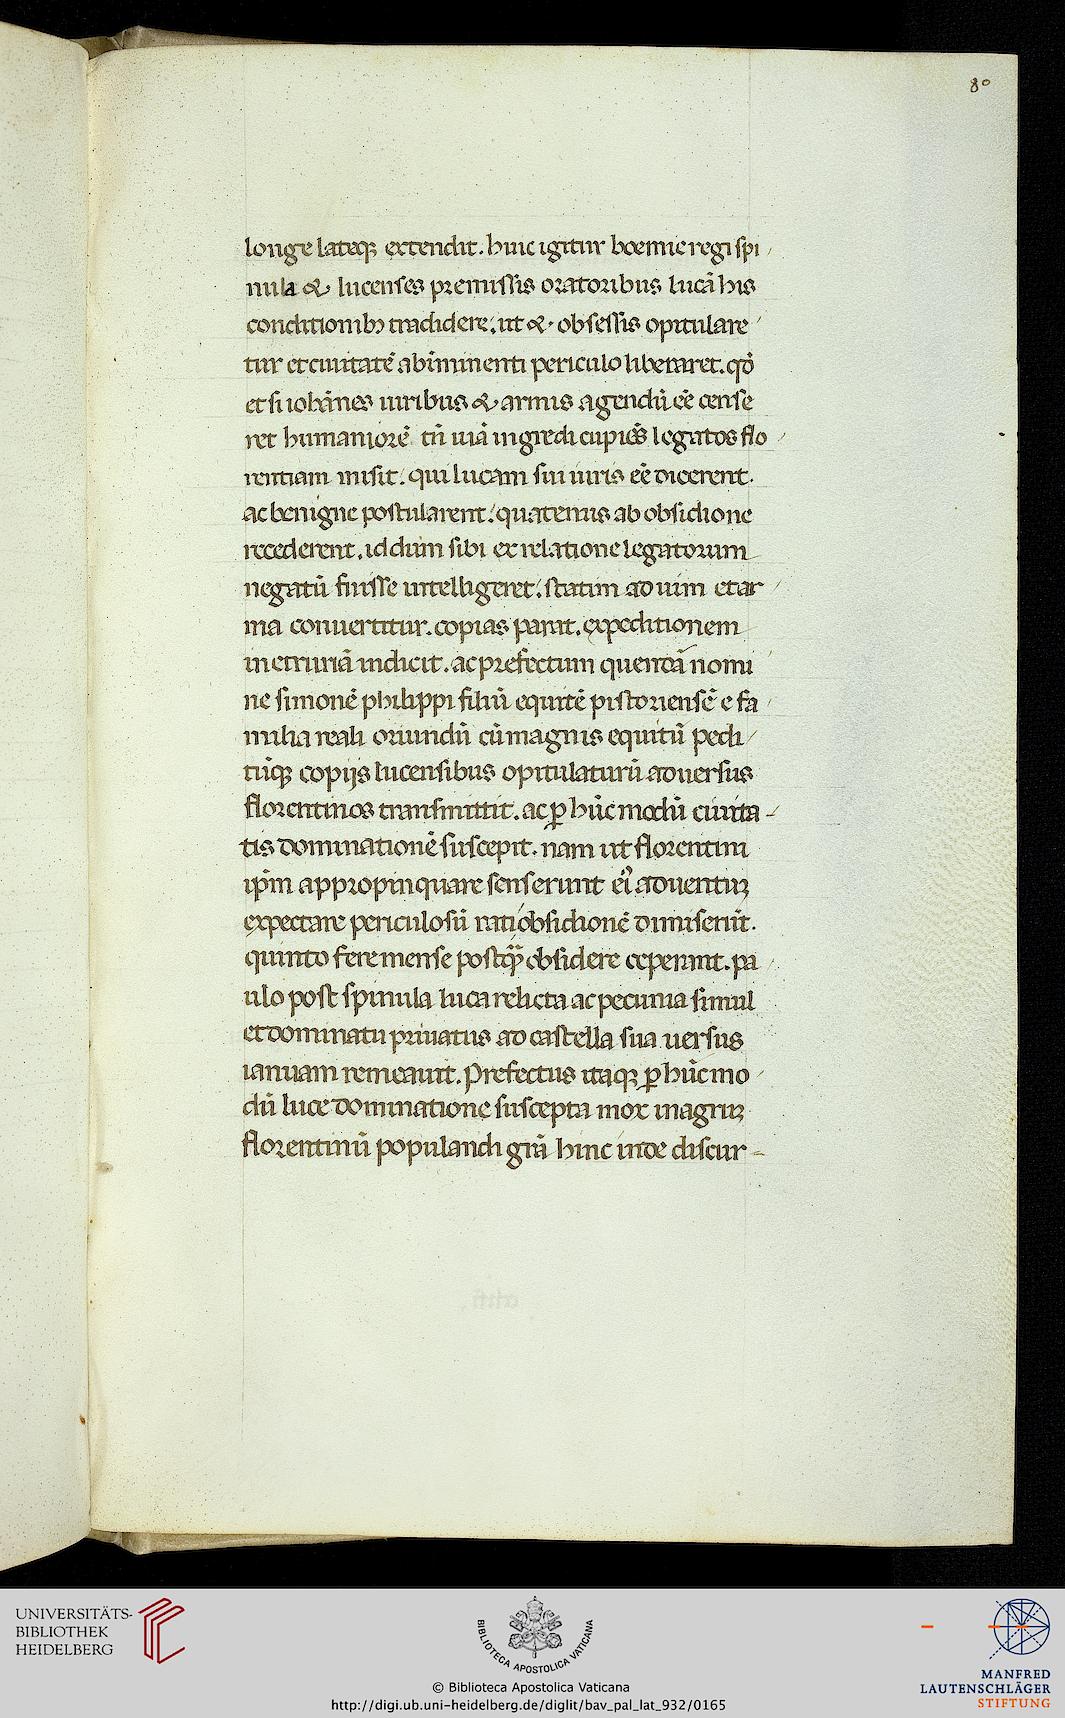 80
longe lateq; extendit. huic igitur boemie regi spi
nula & lucenses premissis oratoribus lucā his
conditionib; tradidere, ut & obsessis opitulare
tur et ciuitatē ab īminenti periculo liberaret. qd̄
et si iohānes uiribus & armis agendū eē cense
ret humaniorē tn̄ uiā ingredi cupiēs legatos flo
rentiam misit. qui lucam sui iuris eē dicerent.
ac benigne postularent. quatenus ab obsidione
recederent. id dum sibi ex relatione legatorum
negatū fuisse intelligeret. statim ad uim et ar
ma conuertitur. copias parat. expeditionem
in etruriā indicit. ac prefectum quendā nomi
ne simonē philippi filiū equitē pistoriensē e fa
milia reali oriundū cū magnis equitū pedi
tūq; copijs lucensibus opitulaturū aduersus
florentinos transmittit. ac ꝑ hūc modū ciuita-
tis dominationē suscepit. nam ut florentini
ip̄m appropinquare senserunt ei᾽ aduentuꝫ
expectare periculosū rati obsidionē dimiserūt.
quinto fere mense postq̄ obsidere ceperunt. pa
ulo post spinula luca relicta ac pecunia simul
et dominatu priuatus ad castella sua uersus
ianuam remeauit. Prefectus itaq; ꝑ hūc mo
dū luce dominatione suscepta mox in agruꝫ
florentinū populandi grā hinc inde discur-
UNIVERSITÄTS-
BIBLIOTHEK
HEIDELBERG
BIBLIOTECA APOSTOLICA VATICANA
© Biblioteca Apostolica Vaticana
http://digi.ub.uni-heidelberg.de/diglit/bav_pal_lat_932/0165
MANFRED
LAUTENSCHLÄGER
STIFTUNG